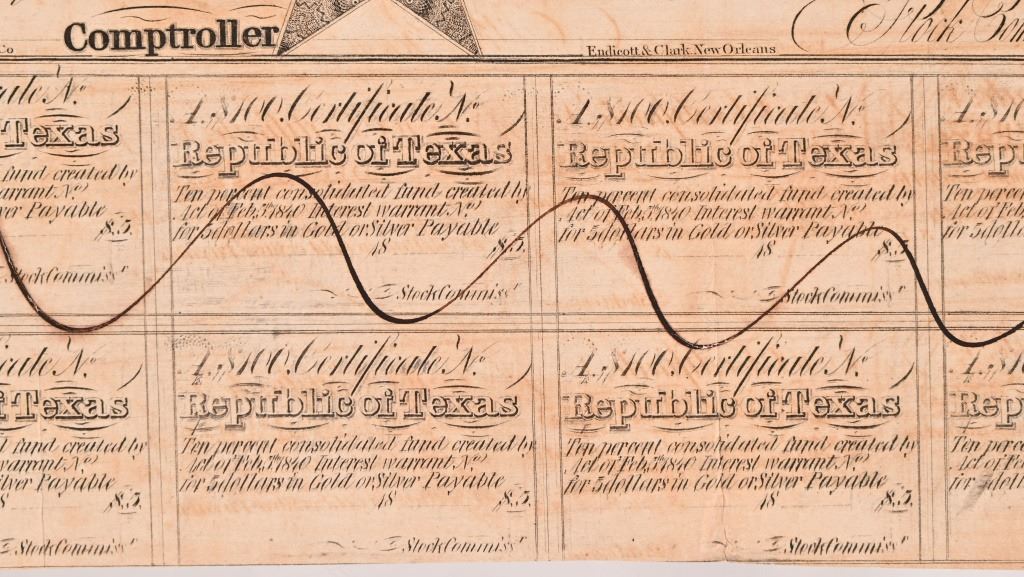 Co
Comptroller
Endicott & Clark. New Orleans
Stock
cate No.
Texas
fund created by
warrant No.
Payable
$5.
Stock Commissr
A. $100. Certificate No.
Republic of Texas
Ten percent consolidated fund created by
Act of Feb. 5th 1840 Interest warrant No.
for 5 dollars in Gold or Silver Payable
18 $5.
Stock Commissr
A. $100. Certificate No.
Republic of Texas
Ten percent consolidated fund created by
Act of Feb. 5th 1840 Interest warrant No.
for 5 dollars in Gold or Silver Payable
18 $5.
Stock Commissr
A. $10
Rep
Ten perce
Act of Feb
for 5 doll
cate No.
f Texas
fund created by
warrant No.
Silver Payable
$5.
Stock Commissr
A. $100. Certificate No.
Republic of Texas
Ten percent consolidated fund created by
Act of Feb. 5th 1840 Interest warrant No.
for 5 dollars in Gold or Silver Payable
18 $5.
Stock Commissr
A. $100. Certificate No.
Republic of Texas
Ten percent consolidated fund created by
Act of Feb. 5th 1840 Interest warrant No.
for 5 dollars in Gold or Silver Payable
18 $5.
Stock Commissr
A. $10
Rep
Ten perce
Act of Feb
for 5 doll